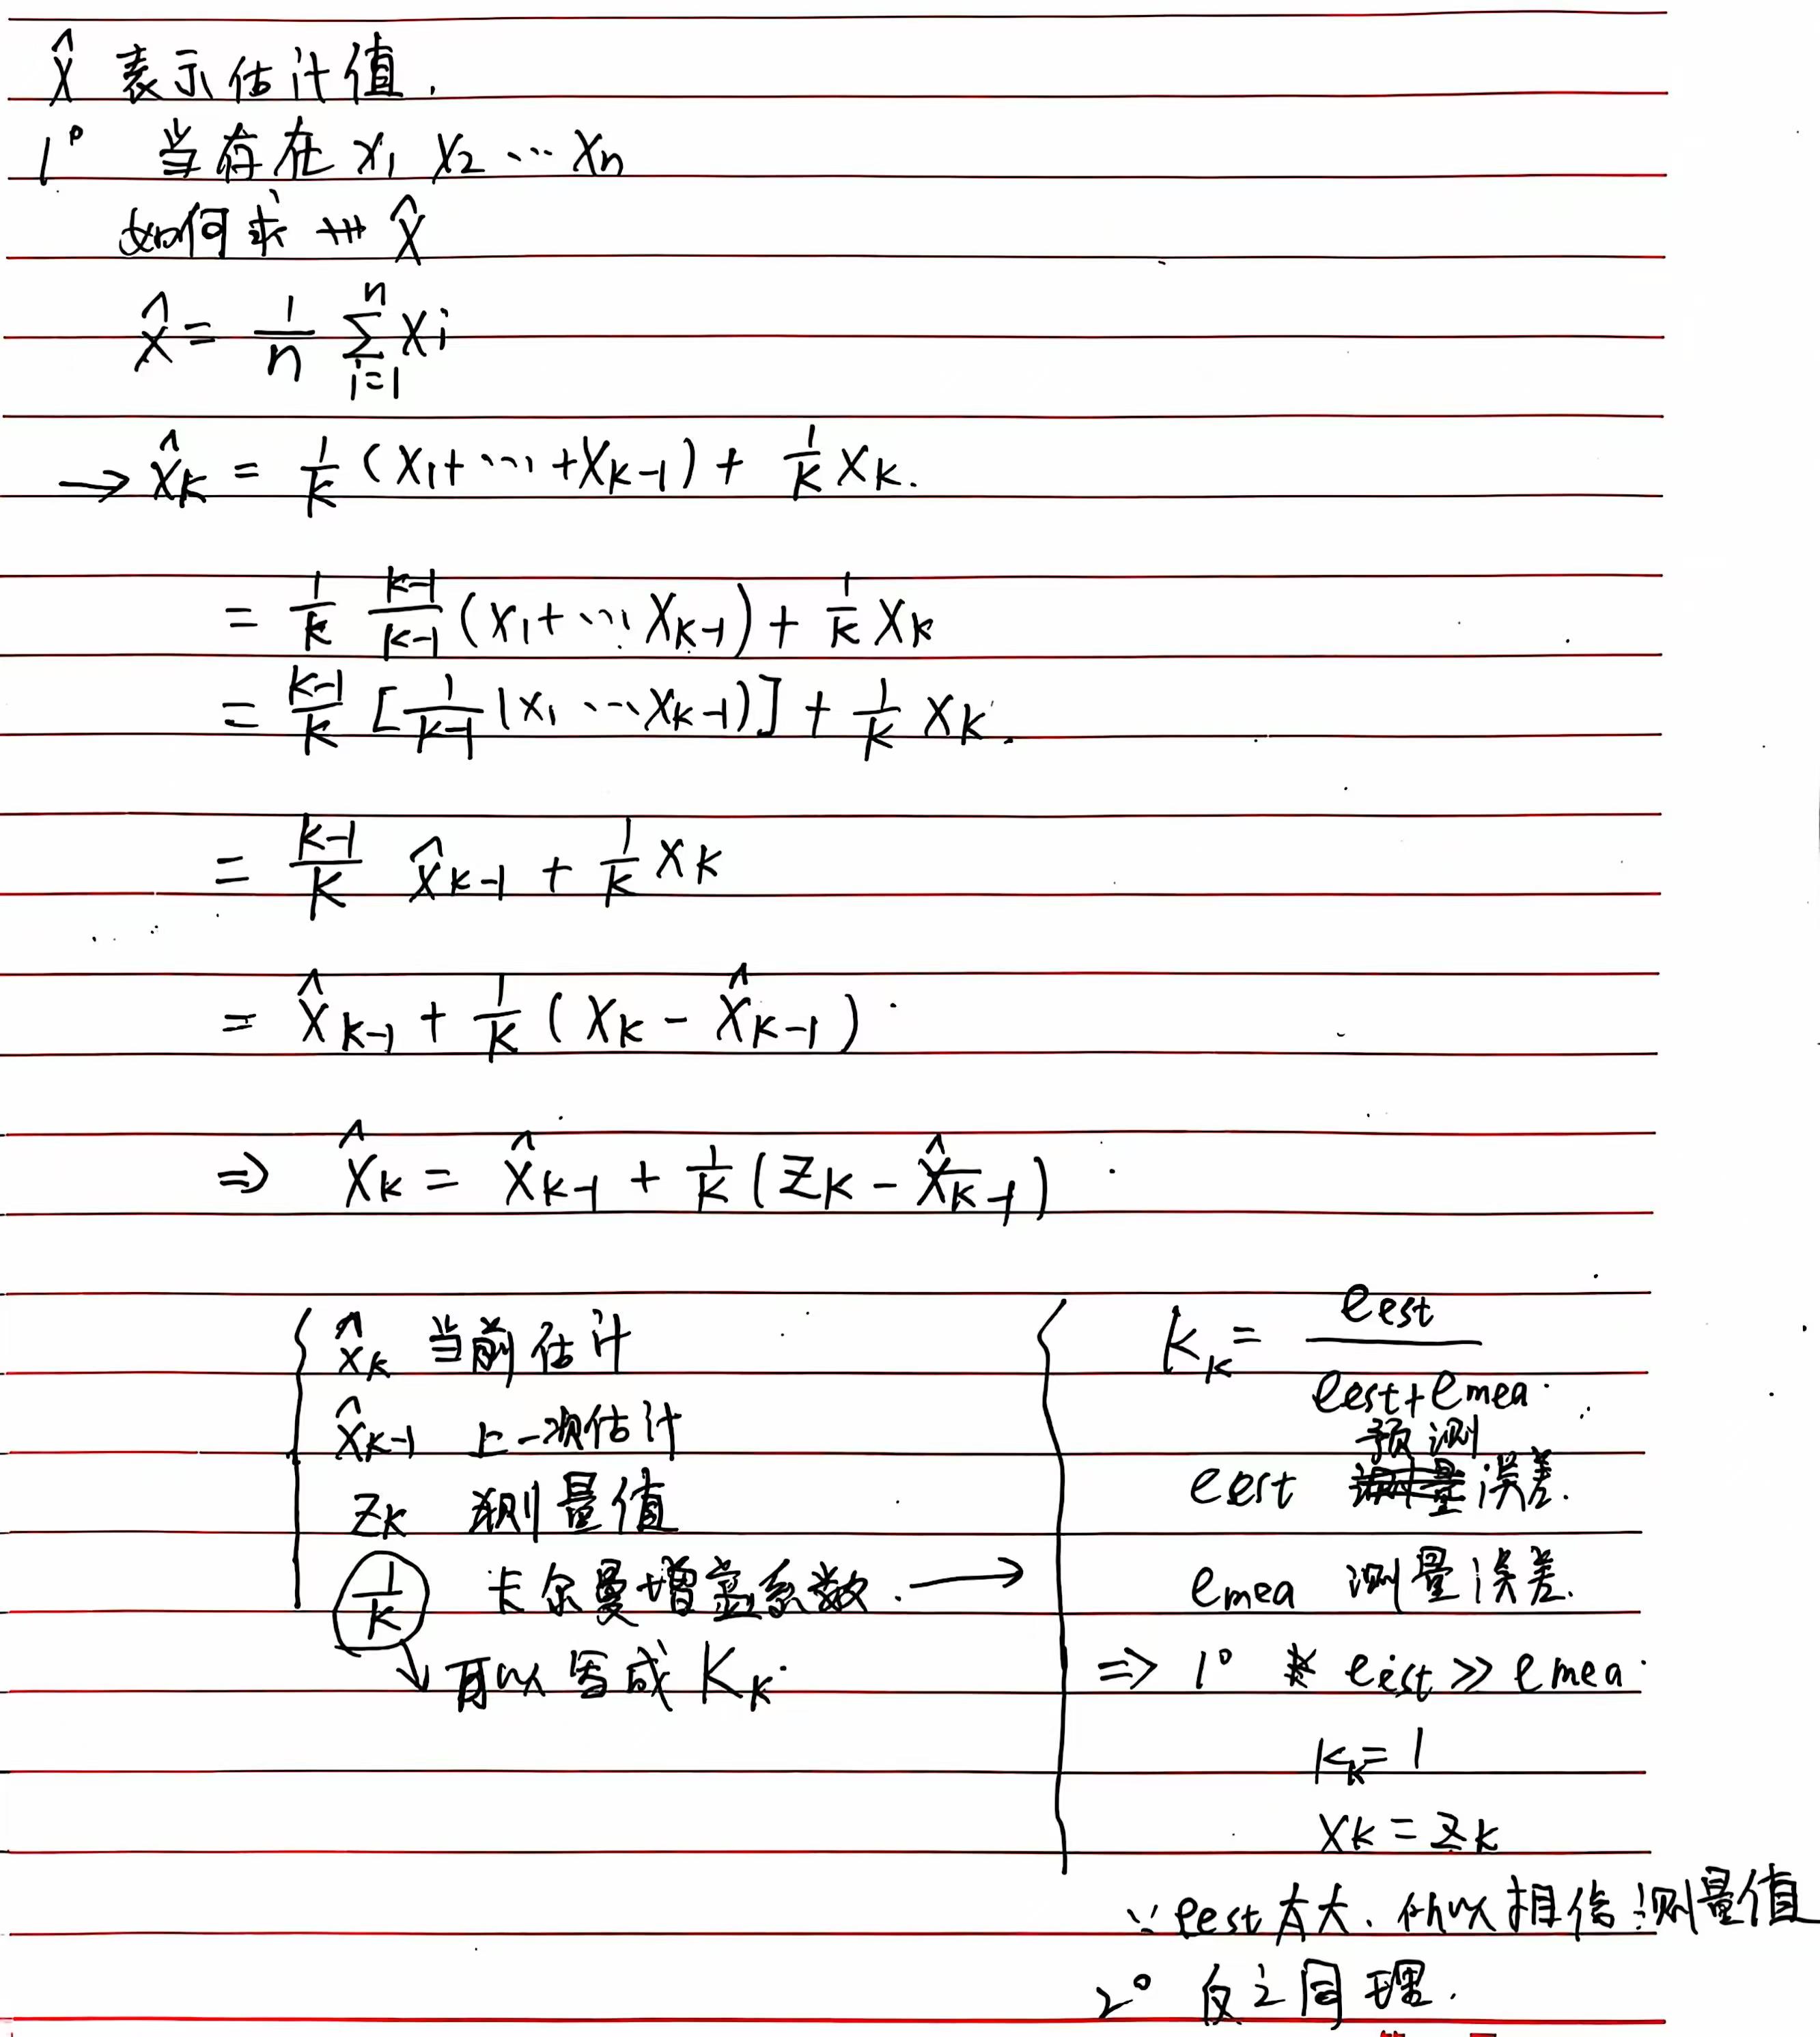 x̂ 表示估计值.
1° 当存在 x₁ x₂ … xₙ
如何求 x̂
x̂ = 1/n Σ_{i=1}^{n} xi
→ x̂k = 1/k (x₁+…+xk-1) + 1/k xk.
= 1/k (k-1)/(k-1) (x₁+…xk-1) + 1/k xk
= (k-1)/k [1/(k-1) (x₁…xk-1)] + 1/k xk.
= (k-1)/k x̂k-1 + 1/k xk
= x̂k-1 + 1/k (xk - x̂k-1)
⇒ x̂k = x̂k-1 + 1/k (zk - x̂k-1)
x̂k 当前估计
x̂k-1 上一次估计
zk 测量值
1/k 卡尔曼增益系数. →
↓ 可以写成 Kk
Kk = eest / (eest+emea)
预测
eest 误差.
emea 测量误差.
⇒ 1° eest >> emea
Kk = 1
xk = zk
∵ eest 太大、所以相信测量值
2° 反之同理.